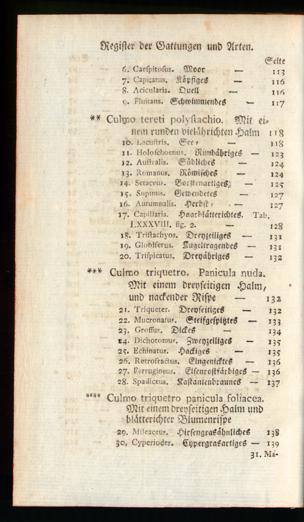 Register der Gattungen und Arten.
Seite
6. Caespitosus. Moor — 113
7. Capitatus. Köpfiges — 116
8. Acicularis. Quell — 116
9. Fluitans. Schwimmendes — 117
** Culmo tereti polystachio. Mit ei-
nem runden vielährichten Halm 118
10. Lacustris. See- — 118
11. Holoschoenus. Rundähriges — 123
12. Australis. Südliches — 124
13. Romanus. Römisches — 124
14. Setaceus. Borstenartiges — 125
15. Supinus. Gewendetes — 127
16. Autumnalis. Herbst- — 127
17. Capillaris. Haarblätterichtes. Tab.
LXXXVIII. fig. 2. — 128
18. Tristachyos. Dreyzeiliges — 131
19. Globiferus. Kugeltragendes — 131
20. Trispicatus. Dreyähriges — 132
*** Culmo triquetro. Panicula nuda.
Mit einem dreyseitigen Halm,
und nackender Rispe — 132
21. Triqueter. Dreyseitiges — 132
22. Mucronatus. Steifgespitztes — 133
23. Grossus. Dickes — 134
24. Dichotomus. Zweyzeiliges — 135
25. Echinatus. Hackiges — 135
26. Retrofractus. Eingenicktes — 136
27. Ferrugineus. Eisenrostfärbiges — 136
28. Spadiceus. Kastanienbraunes — 137
**** Culmo triquetro panicula foliacea.
Mit einem dreyseitigen Halm und
blätterichter Blumenrispe
29. Miliaceus. Hirsengrasähnliches 138
30. Cyperioides. Cypergrasartiges — 139
31. Ma-